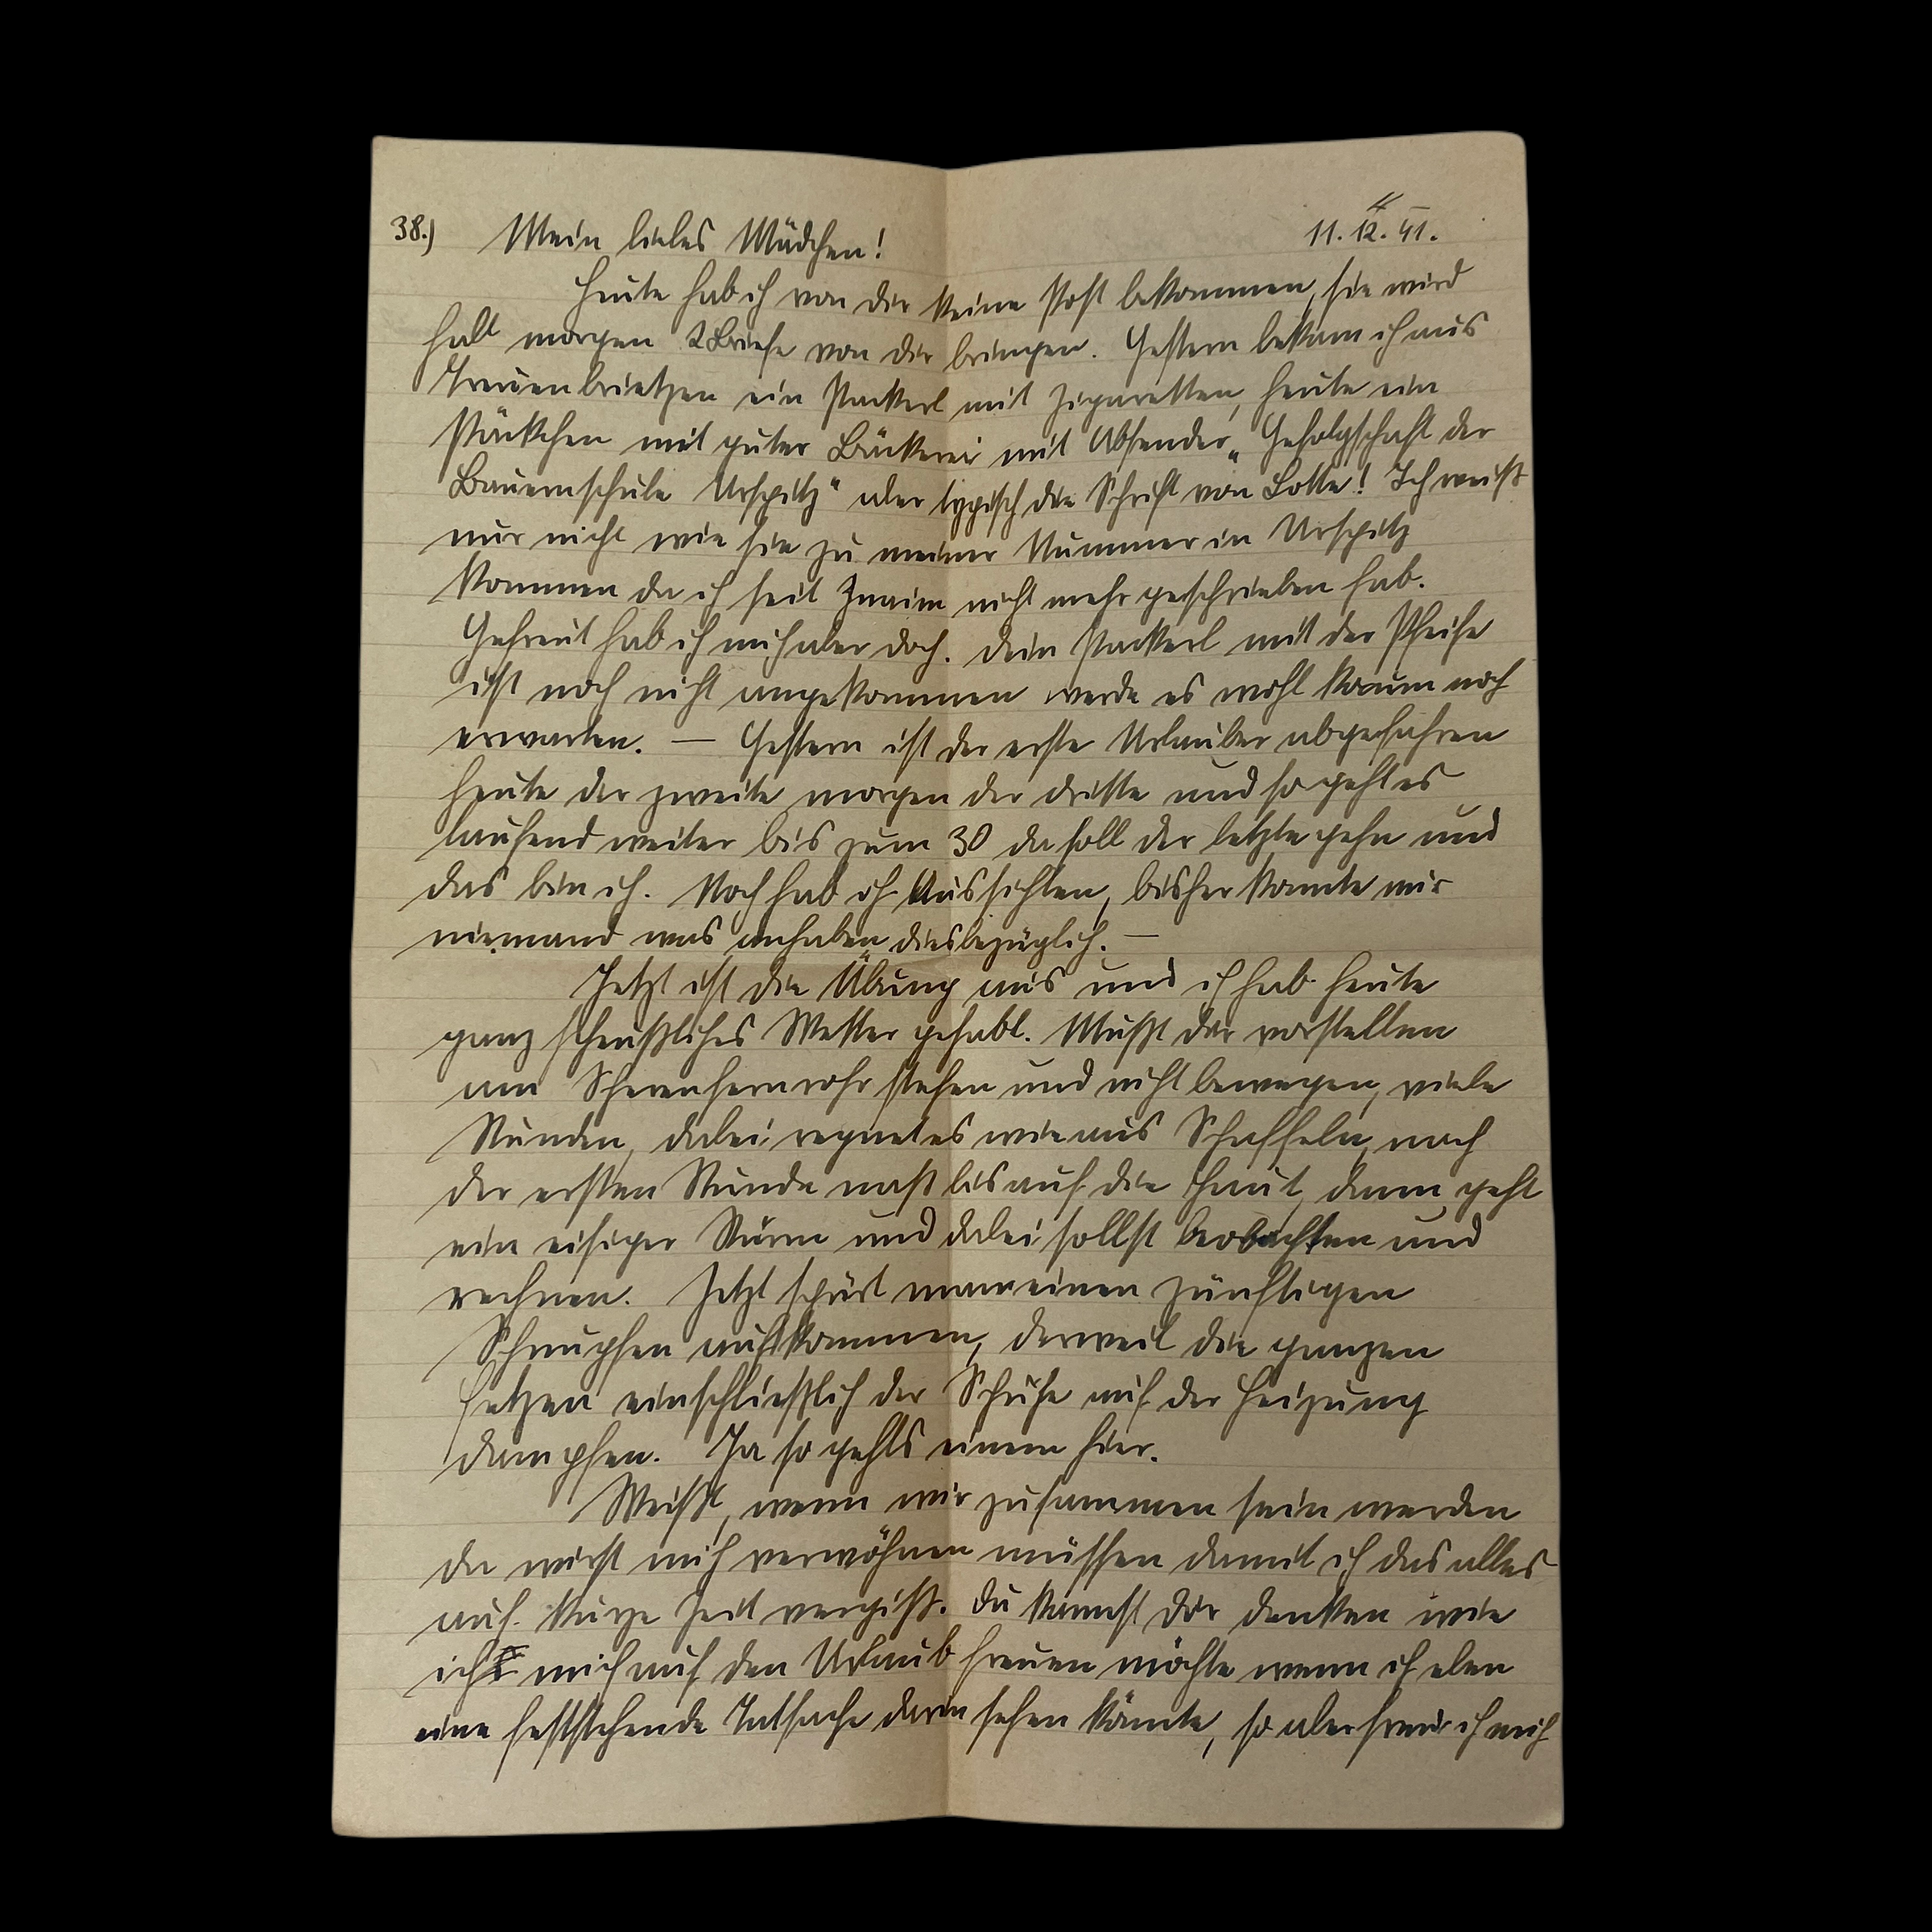 38.) Mein liebes Mädchen! 11. 12. 41.
Heute hab ich von dir keine Post bekommen, sie wird
halt morgen 2 Briefe von dir bringen. Gestern bekam ich aus
Treuenbrietzen ein Packerl mit Zigaretten, heute ein
Päckchen mit guter Bäckerei mit Absender „Gefolgschaft der
Bauernschule Urspitz" aber typisch die Schrift von Lotte! Ich weiß
nur nicht wie sie zu meiner Nummer in Urspitz
kommen da ich seit Znaim nicht mehr geschrieben hab.
Gefreut hab ich mich aber doch. Dein Packerl mit der Pfeife
ist noch nicht angekommen werde es wohl kaum noch
erwarten. — Gestern ist der erste Urlauber abgefahren
heute der zweite morgen der dritte und so geht es
laufend weiter bis zum 30 da soll der letzte gehn und
das bin ich. Noch hab ich Aussichten, bisher konnte mir
niemand was anhaben diesbezüglich. —
Jetzt ist die Übung aus und ich hab heute
ganz scheußliches Wetter gehabt. Mußt dir vorstellen
am Scherenfernrohr stehen und nicht bewegen, viele
Stunden, dabei regnet es wie aus Schaffeln, nach
der ersten Stunde naß bis auf die Haut, dann geht
ein eisiger Sturm und dabei sollst beobachten und
rechnen. Jetzt spürt man einen zünftigen
Schnupfen aufkommen, derweil die ganzen
Fetzen einschließlich der Schuhe auf der Heizung
dampfen. Ja so gehts einem hier.
Weißt, wenn wir zusammen sein werden
da wirst mich verwöhnen müssen damit ich das alles
auf kurze Zeit vergiß. Du kannst dir denken wie
ich mich auf den Urlaub freuen möchte wenn ich eben
eine feststehende Tatsache darin sehen könnte, so aber freue ich mich